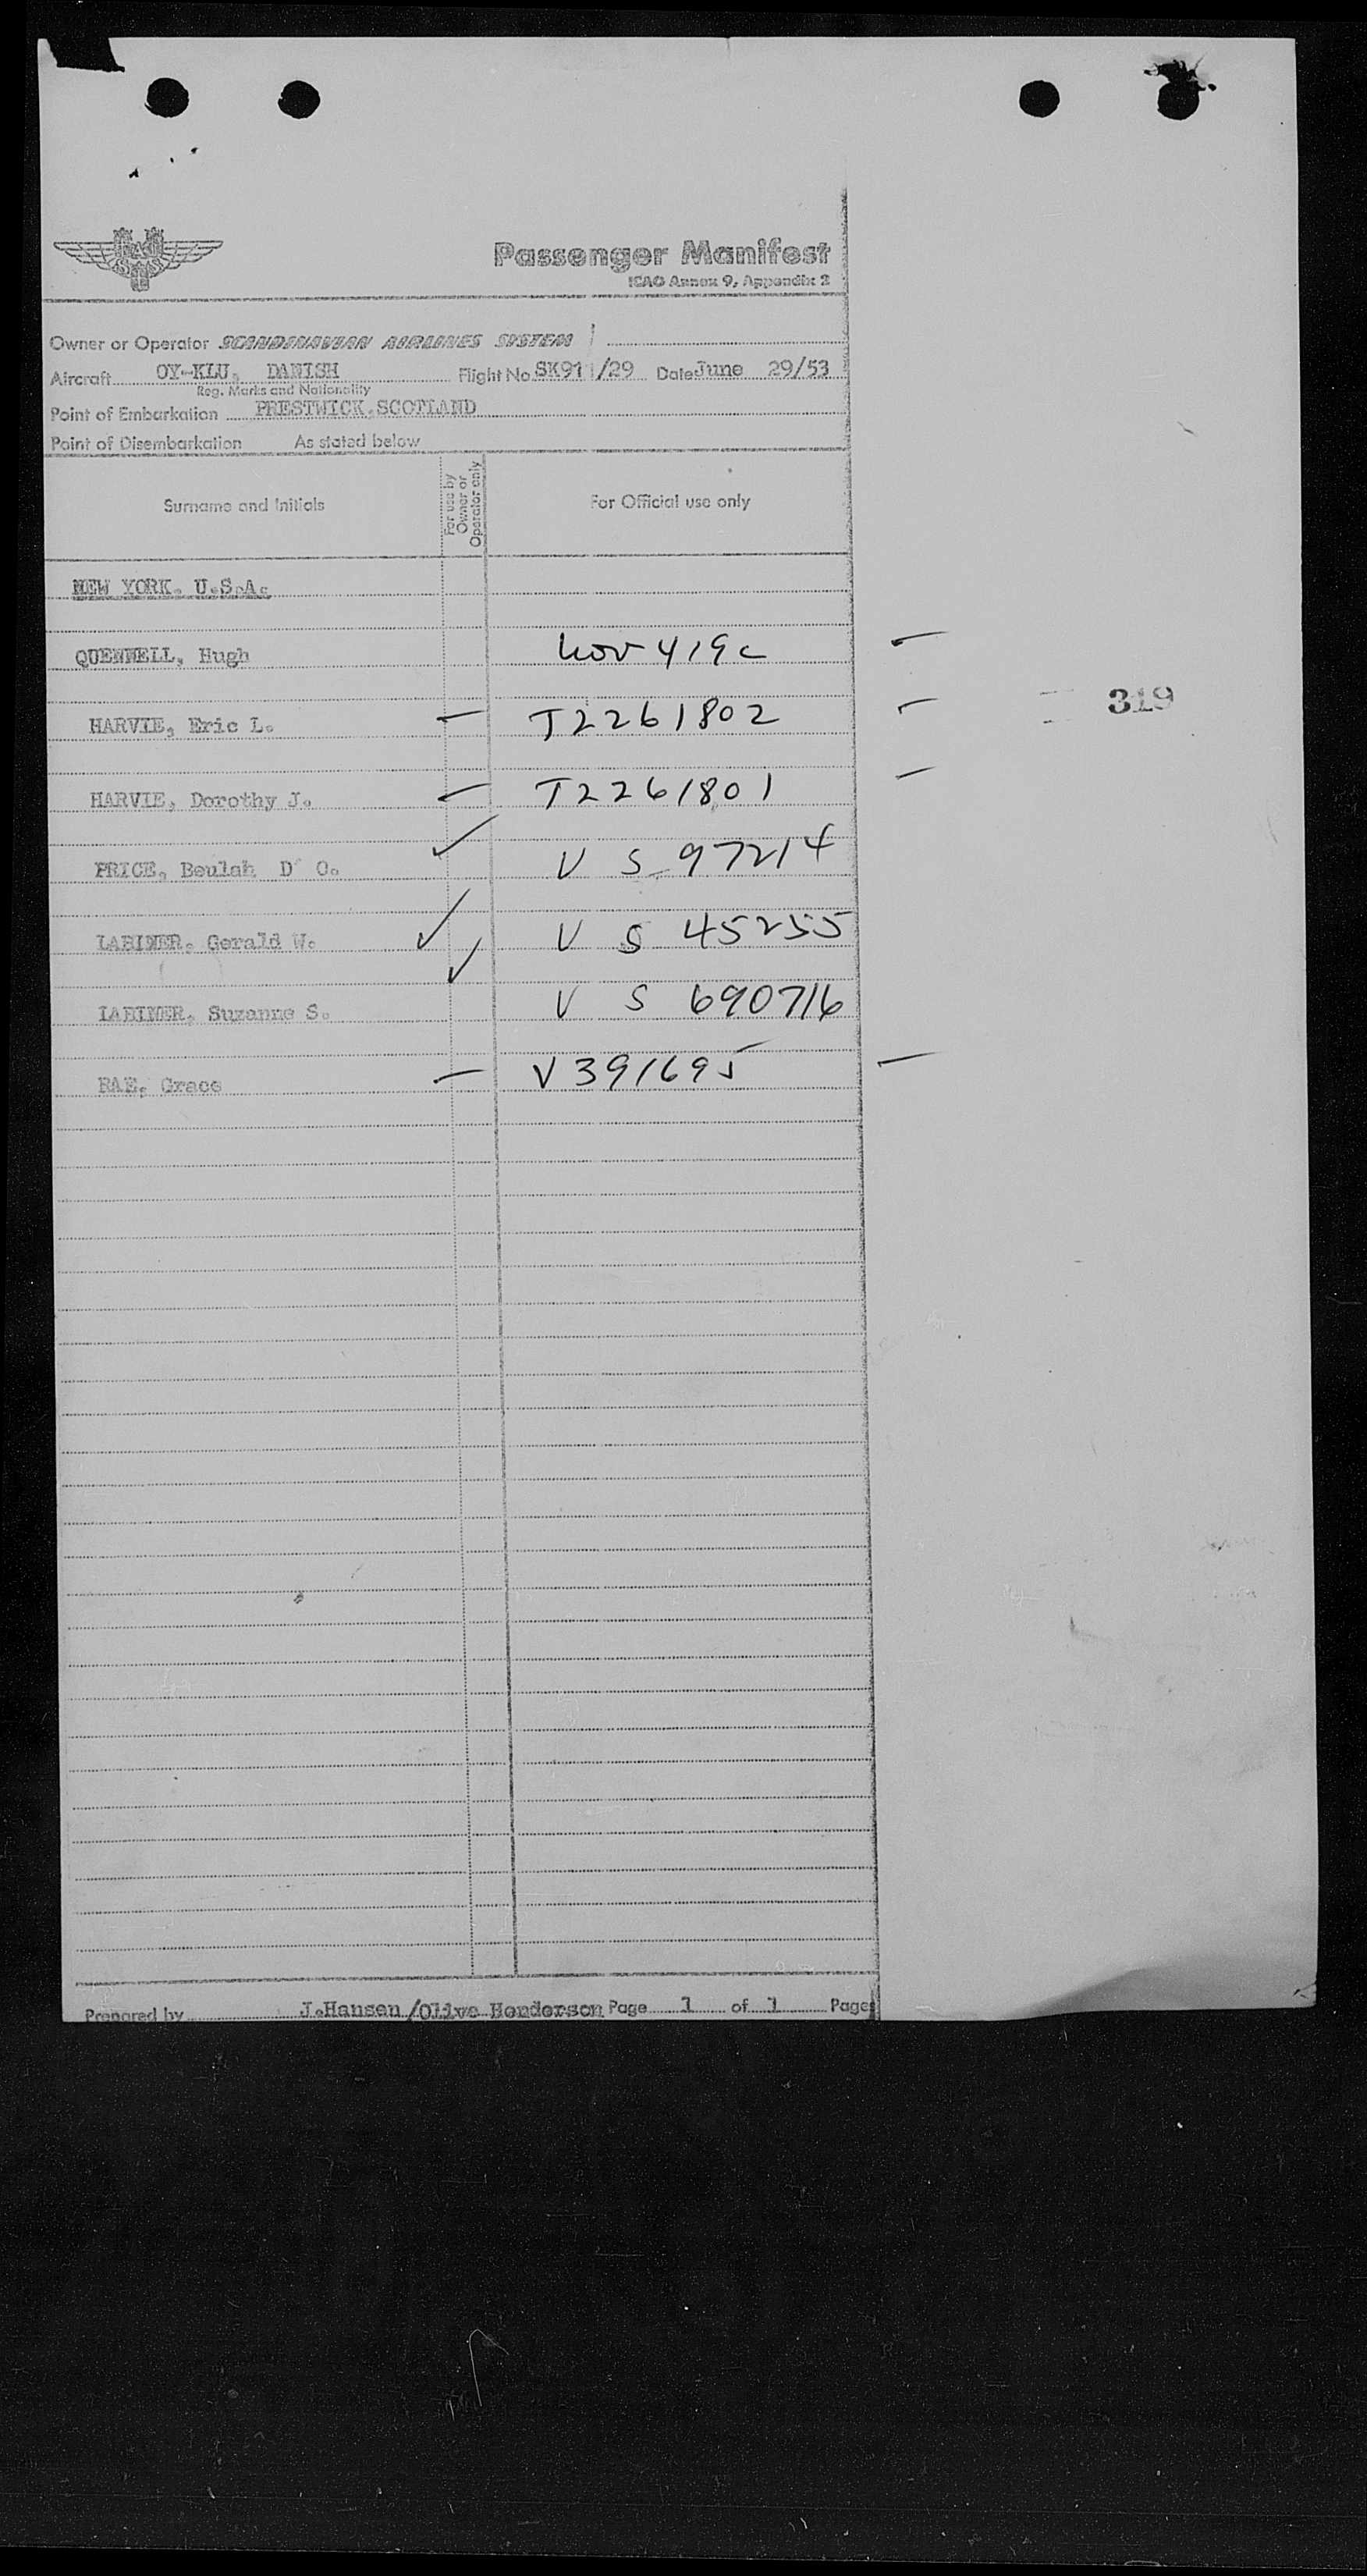 SAS
Passenger Manifest
ICAO Annex 9, Appendix 2
Owner or Operator SCANDINAVIAN AIRLINES SYSTEM
Aircraft OY-KLU, DANISH Flight No. SK911/29 Date June 29/53
Reg. Marks and Nationality
Point of Embarkation PRESTWICK, SCOTLAND
Point of Disembarkation As stated below
Surname and Initials For use by Owner or Operator only For Official use only
NEW YORK. U.S.A.
QUENNELL, Hugh 419c
319
HARVIE, Eric L. T2261802
HARVIE, Dorothy J. T2261801
PRICE, Beulah D' O. V S 97214
LARIMER, Gerald W. V S 45255
LARIMER, Suzanne S. V S 690716
RAE, Grace V391695
Prepared by J.Hansen/Olive Henderson Page 1 of 1 Pages